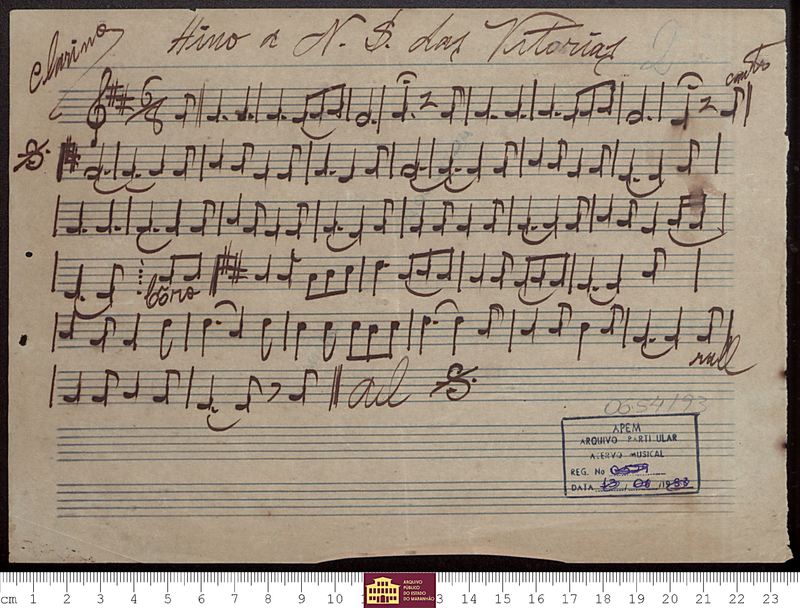 Clarino
Hino a N. S. das Vitorias 2
6/8
canto
côro
rall
al
0654/93
APEM
ARQUIVO PARTICULAR
ACERVO MUSICAL
REG. No
DATA 13 / 06 /19
ARQUIVO
PÚBLICO
DO ESTADO
DO MARANHÃO
cm 1 2 3 4 5 6 7 8 9 10 13 14 15 16 17 18 19 20 21 22 23